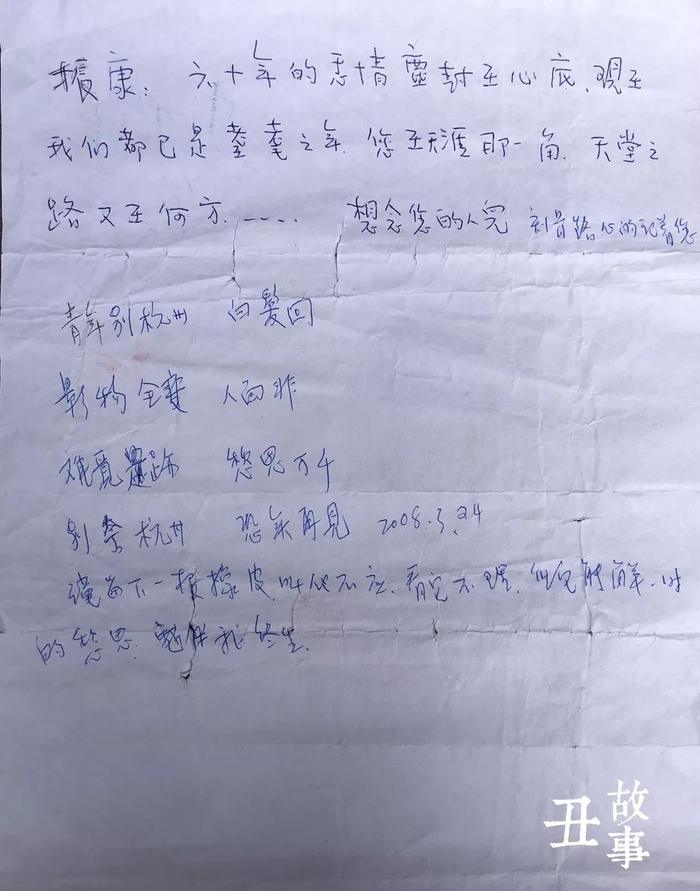 振康：六十年的恋情尘封在心底，现在
我们都已是耄耋之年，您在天涯那一角，天堂之
路又在何方，…… 想念您的人儿 刻骨铭心的记着您
青年别杭州 白髮回
影物全变 人面非
难觅踪 愁思万千
别杭州 恐无再见 2008.3.24
留下一根橡皮，叫他不应，看它不理，但它能解一时
的愁思，伴我终生。
丑故事